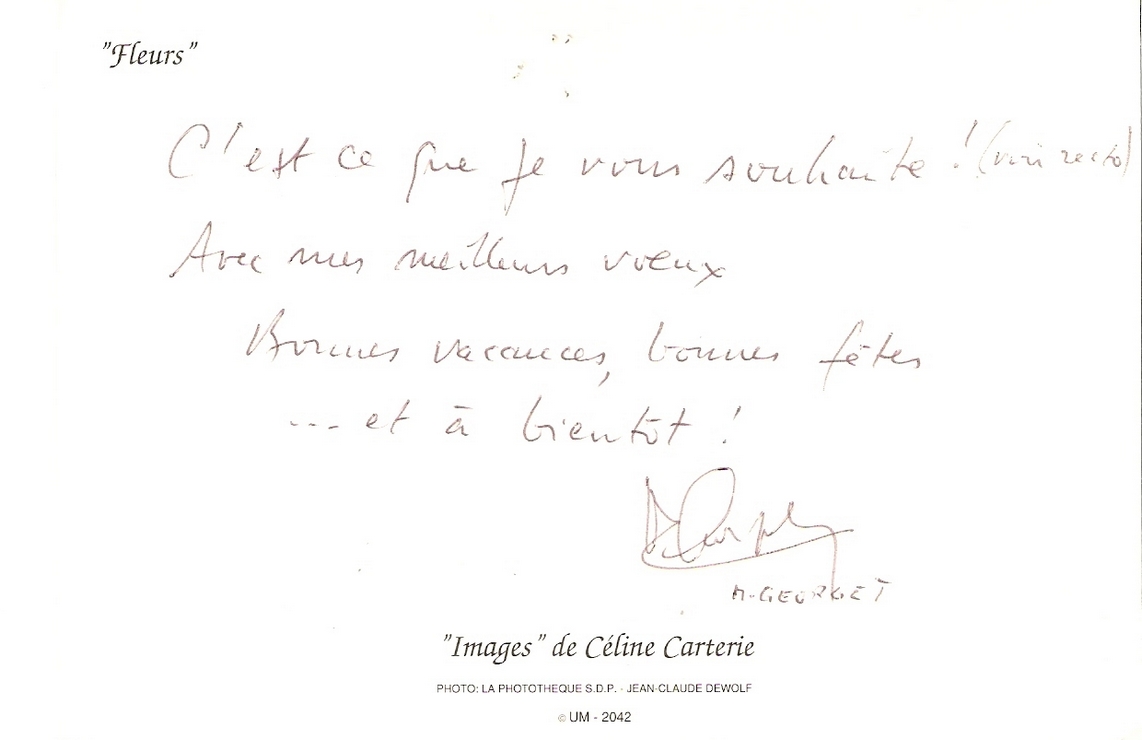 "Fleurs"
C'est ce que je vous souhaite ! (voir recto)
Avec mes meilleurs voeux
Bonnes vacances, bonnes fêtes
... et à bientôt !
M. GEORGET
"Images" de Céline Carterie
PHOTO: LA PHOTOTHEQUE S.D.P. - JEAN-CLAUDE DEWOLF
© UM - 2042